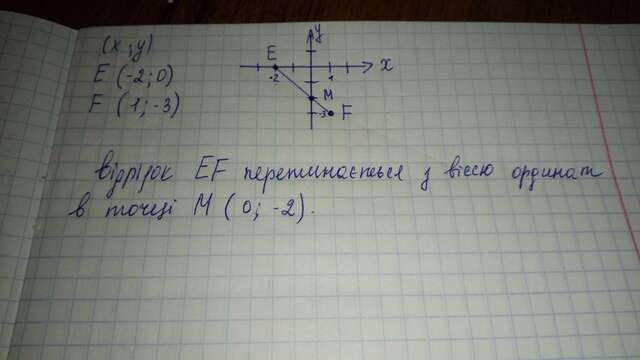 (x ; y)
E (-2; 0)
F (1; -3)
y
E
x
-2
1
M
-3
F
Відрізок EF перетинається з віссю ординат
в точці M (0; -2).